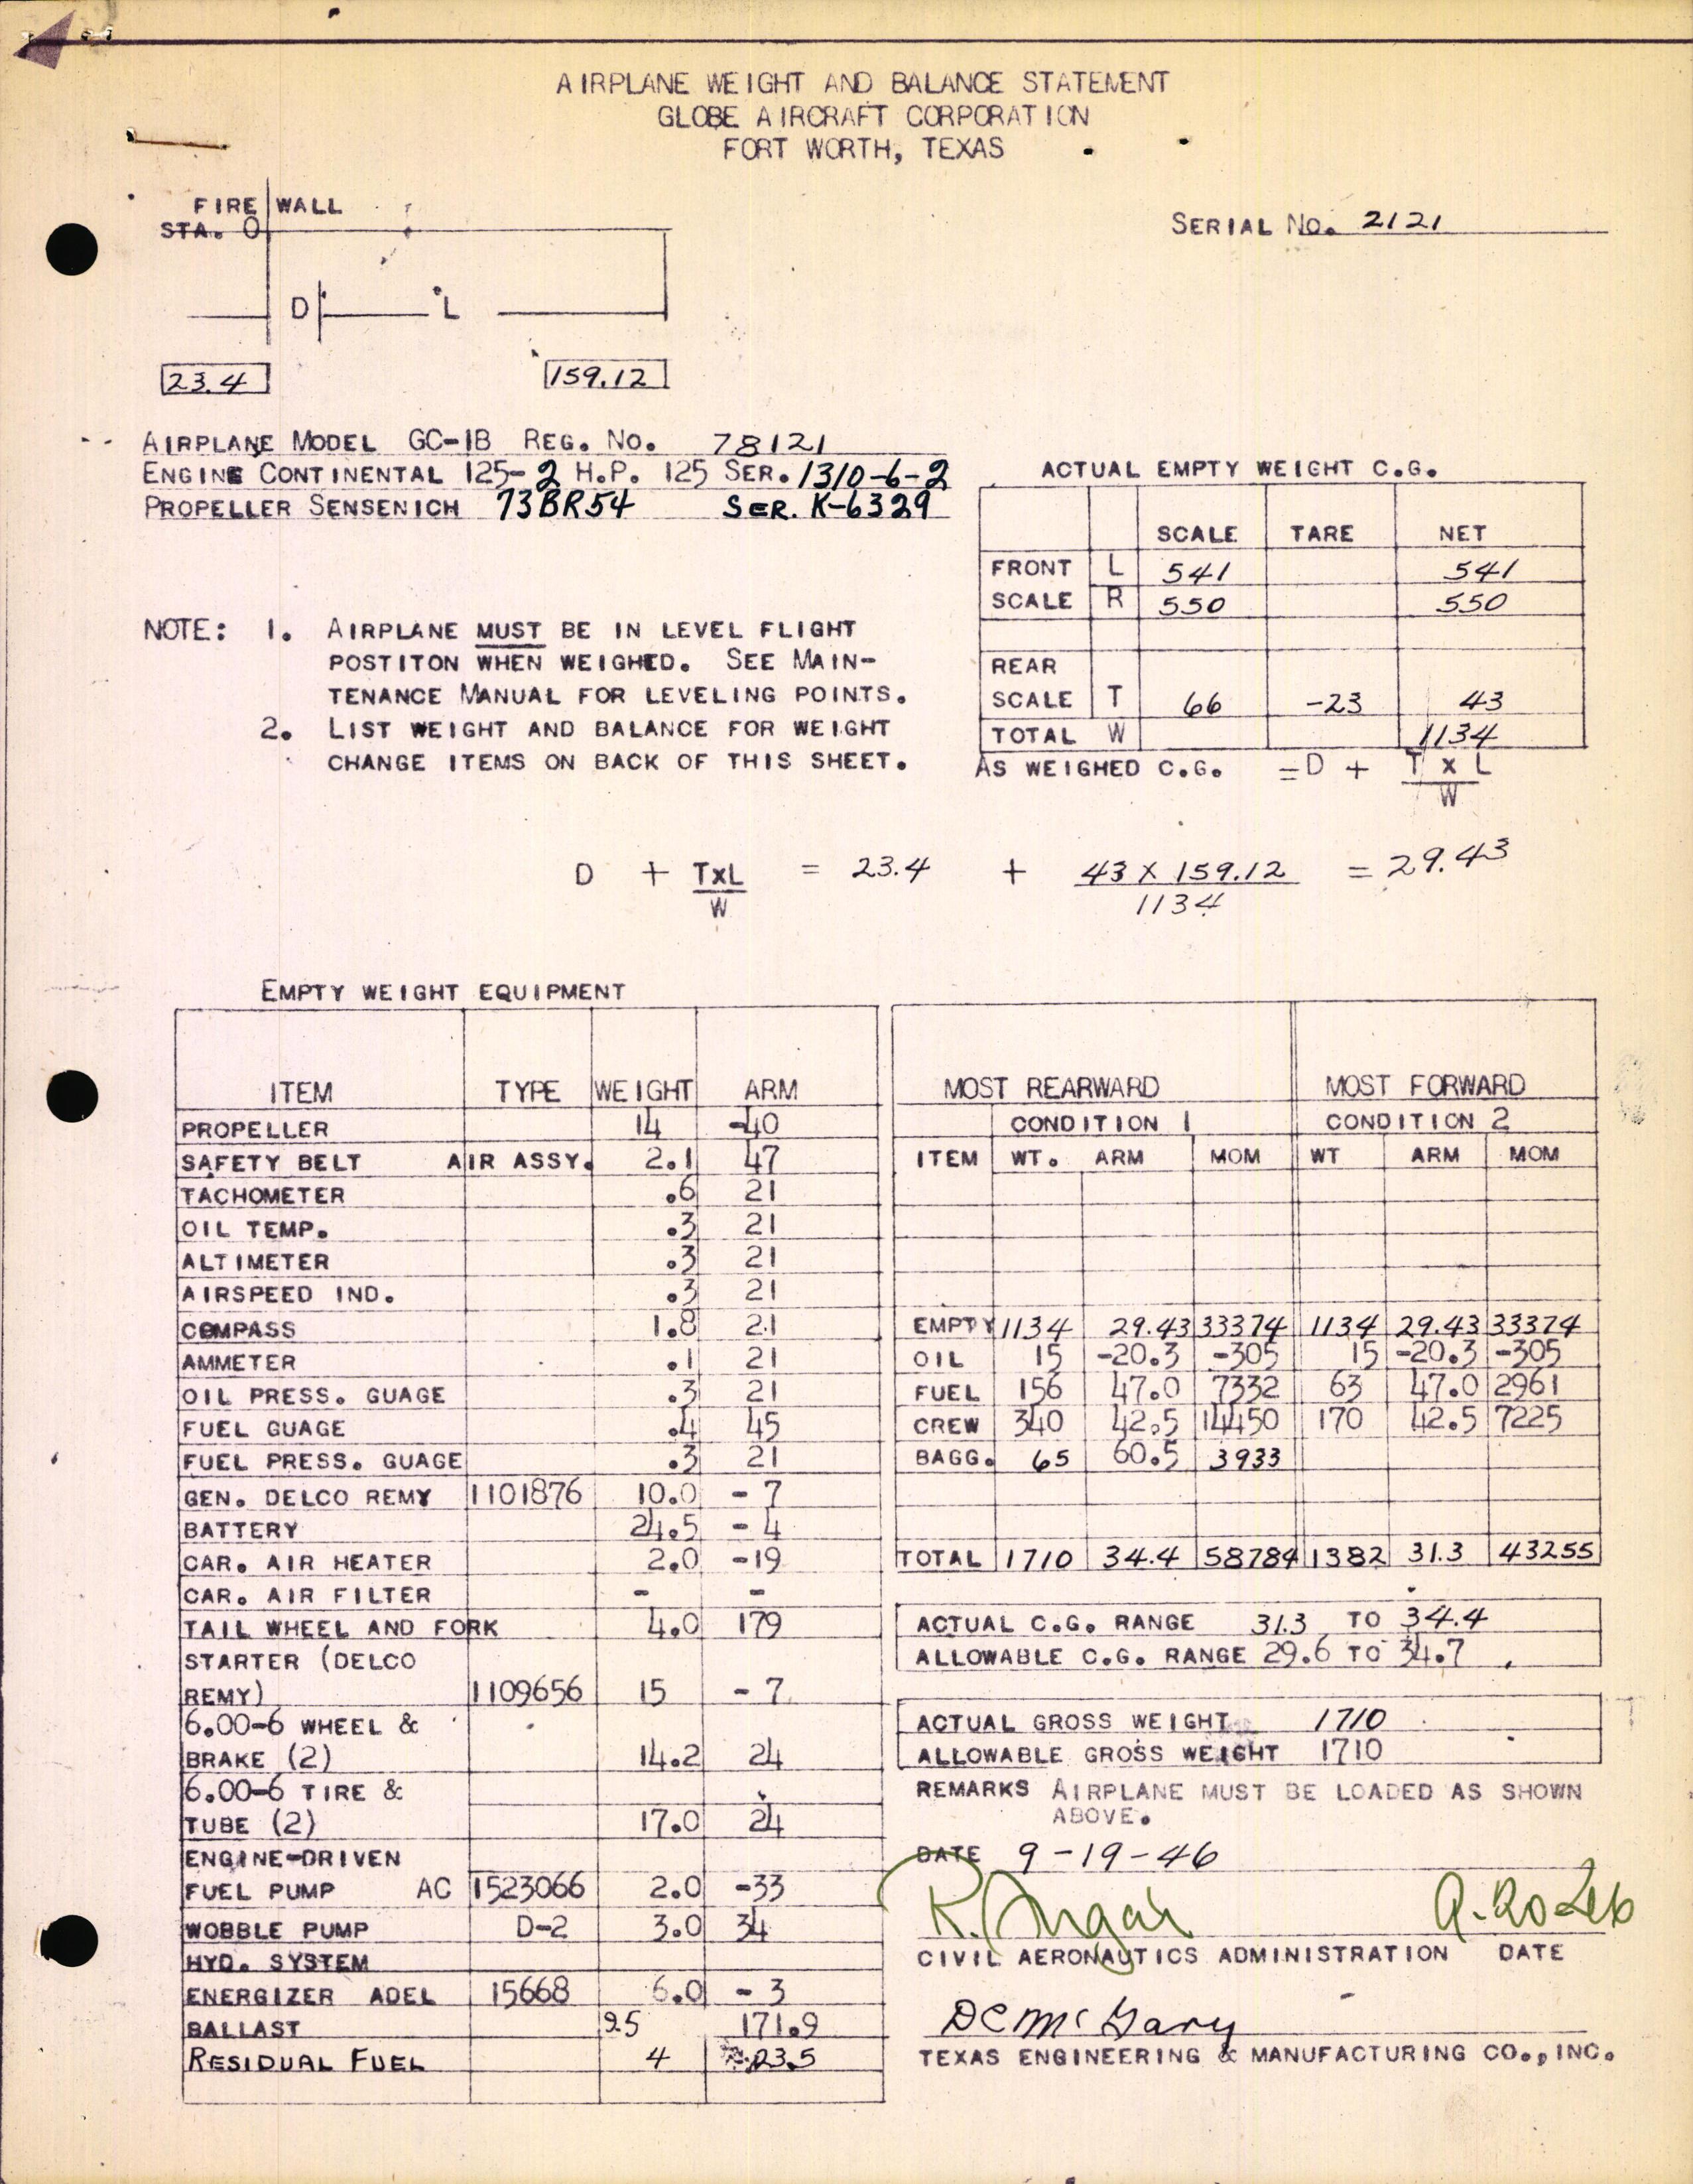 AIRPLANE WEIGHT AND BALANCE STATEMENT
GLOBE AIRCRAFT CORPORATION
FORT WORTH, TEXAS
FIRE WALL
STA. O
SERIAL NO. 2121
D L
23.4 159.12
AIRPLANE MODEL GC-1B REG. NO. 78121
ENGINE CONTINENTAL 125-2 H.P. 125 SER. 1310-6-2
PROPELLER SENSENICH 73BR54 SER. K-6329
ACTUAL EMPTY WEIGHT C.G.
SCALE TARE NET
FRONT L 541 541
SCALE R 550 550
REAR
SCALE T 66 -23 43
TOTAL W 1134
AS WEIGHED C.G. = D + T x L
W
NOTE: 1. AIRPLANE MUST BE IN LEVEL FLIGHT
POSTITON WHEN WEIGHED. SEE MAIN-
TENANCE MANUAL FOR LEVELING POINTS.
2. LIST WEIGHT AND BALANCE FOR WEIGHT
CHANGE ITEMS ON BACK OF THIS SHEET.
D + TxL = 23.4 + 43 X 159.12 = 29.43
W 1134
EMPTY WEIGHT EQUIPMENT
ITEM TYPE WEIGHT ARM
PROPELLER 14 -40
SAFETY BELT AIR ASSY. 2.1 47
TACHOMETER .6 21
OIL TEMP. .3 21
ALTIMETER .3 21
AIRSPEED IND. .3 21
COMPASS 1.8 21
AMMETER .1 21
OIL PRESS. GUAGE .3 21
FUEL GUAGE .4 45
FUEL PRESS. GUAGE .3 21
GEN. DELCO REMY 1101876 10.0 - 7
BATTERY 24.5 - 4
CAR. AIR HEATER 2.0 -19
CAR. AIR FILTER - -
TAIL WHEEL AND FORK 4.0 179
STARTER (DELCO
REMY) 1109656 15 - 7
6.00-6 WHEEL &
BRAKE (2) 14.2 24
6.00-6 TIRE &
TUBE (2) 17.0 24
ENGINE-DRIVEN
FUEL PUMP AC 1523066 2.0 -33
WOBBLE PUMP D-2 3.0 34
HYD. SYSTEM
ENERGIZER ADEL 15668 6.0 - 3
BALLAST 25 171.9
RESIDUAL FUEL 4 23.5
MOST REARWARD MOST FORWARD
CONDITION 1 CONDITION 2
ITEM WT. ARM MOM WT ARM MOM
EMPTY 1134 29.43 33374 1134 29.43 33374
OIL 15 -20.3 -305 15 -20.3 -305
FUEL 156 47.0 7332 63 47.0 2961
CREW 340 42.5 14450 170 42.5 7225
BAGG. 65 60.5 3933
TOTAL 1710 34.4 58784 1382 31.3 43255
ACTUAL C.G. RANGE 31.3 TO 34.4
ALLOWABLE C.G. RANGE 29.6 TO 34.7
ACTUAL GROSS WEIGHT 1710
ALLOWABLE GROSS WEIGHT 1710
REMARKS AIRPLANE MUST BE LOADED AS SHOWN
ABOVE.
DATE 9-19-46
CIVIL AERONAUTICS ADMINISTRATION DATE
DC McGary
TEXAS ENGINEERING & MANUFACTURING CO., INC.